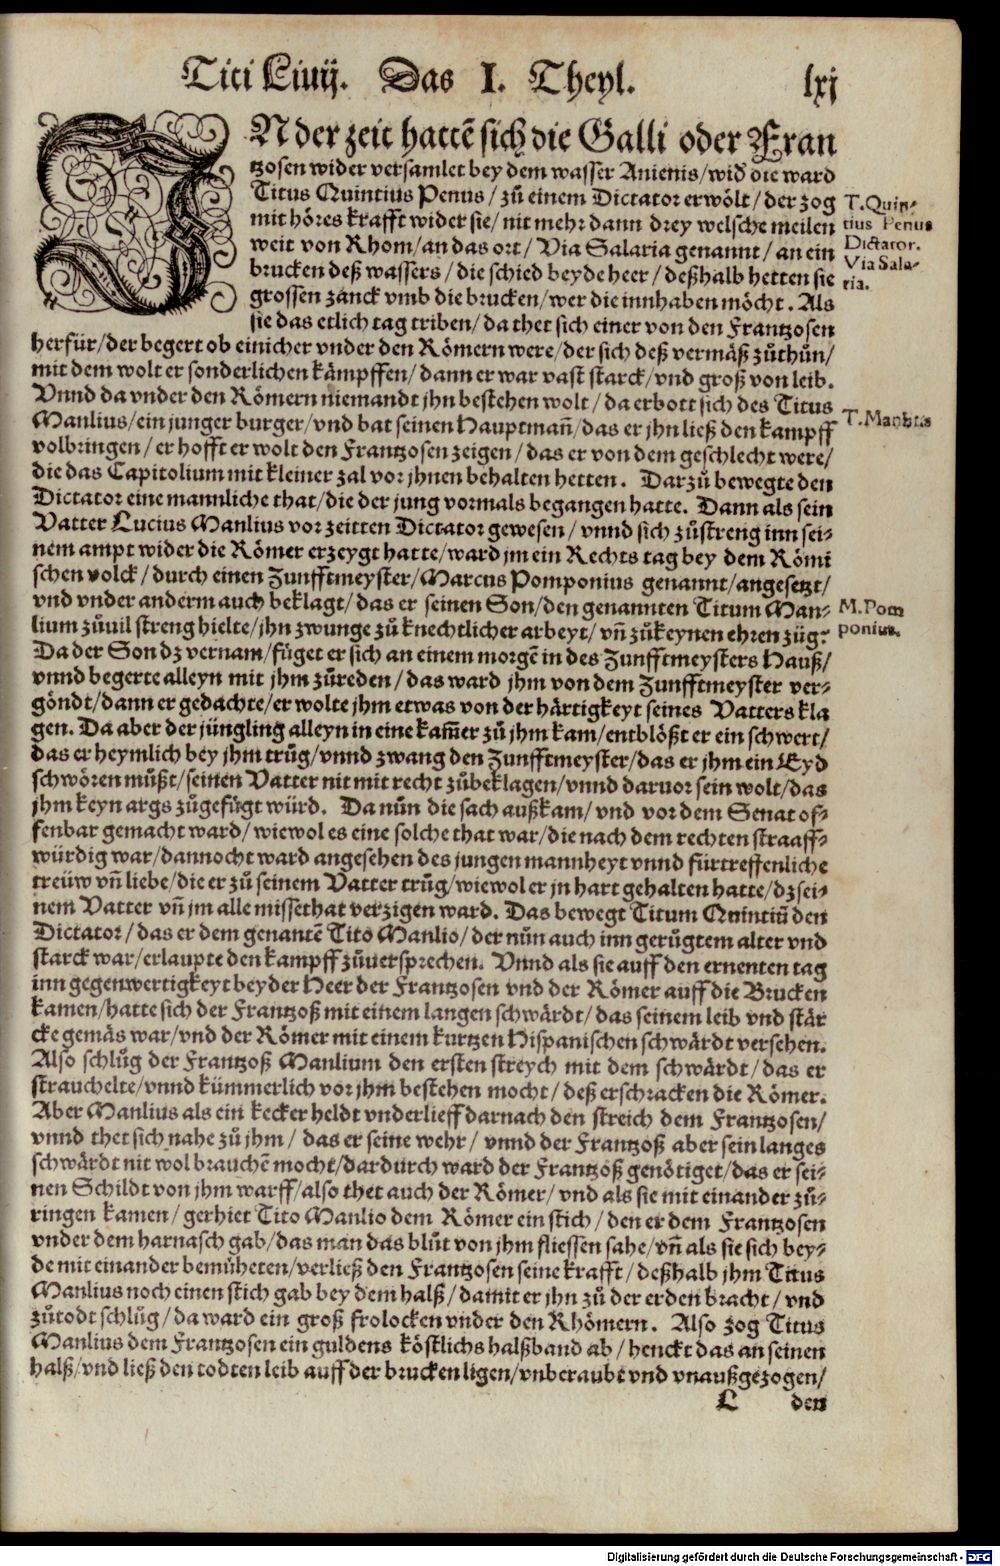 Titi Liuij. Das I. Theyl. lxj
IN der zeit hattē sich die Galli oder Fran
tzosen wider versamlet bey dem wasser Anienis/wid die ward
Titus Quintius Penus/ zů einem Dictator erwölt/ der zog
mit höres krafft wider sie/ nit mehr dann drey welsche meilen
weit von Rhom/ an das ort/ Via Salaria genannt/ an ein
brucken deß wassers/ die schied beyde heer/ deßhalb hetten sie
grossen zanck vmb die brucken/ wer die innhaben möcht. Als
sie das etlich tag triben/ da thet sich einer von den Frantzosen
herfür/ der begert ob einicher vnder den Römern were/ der sich deß vermäß zůthůn/
mit dem wolt er sonderlichen kämpffen/ dann er war vast starck/ vnd groß von leib.
Vnnd da vnder den Römern niemandt jhn bestehen wolt/ da erbott sich des Titus
Manlius/ ein junger burger/ vnd bat seinen Hauptmañ/ das er jhn ließ den kampff
volbringen/ er hofft er wolt den Frantzosen zeigen/ das er von dem geschlecht were/
die das Capitolium mit kleiner zal vor jhnen behalten hetten. Darzů bewegte den
Dictator eine mannliche that/ die der jung vormals begangen hatte. Dann als sein
Vatter Lucius Manlius vor zeitten Dictator gewesen/ vnnd sich zůstreng inn sei-
nem ampt wider die Römer erzeygt hatte/ ward jm ein Rechts tag bey dem Römi
schen volck/ durch einen Zunfftmeyster/ Marcus Pomponius genannt/ angesetzt/
vnd vnder anderm auch beklagt/ das er seinen Son/ den genannten Titum Man-
lium zůuil streng hielte/ jhn zwunge zů knechtlicher arbeyt/ vñ zů keynen ehren züg:
Da der Son dz vernam/ füget er sich an einem morgē in des Zunfftmeysters Hauß/
vnnd begerte alleyn mit jhm zůreden/ das ward jhm von dem Zunfftmeyster ver-
göndt/ dann er gedachte/ er wolte jhm etwas von der härtigkeyt seines Vatters kla
gen. Da aber der jüngling alleyn in eine kam̃er zů jhm kam/ entblößt er ein schwert/
das er heymlich bey jhm trůg/ vnnd zwang den Zunfftmeyster/ das er jhm ein Eyd
schwören můßt/ seinen Vatter nit mit recht zůbeklagen/ vnnd daruor sein wolt/ das
jhm keyn args zůgefügt würd. Da nůn die sach außkam/ vnd vor dem Senat of-
fenbar gemacht ward/ wiewol es eine solche that war/ die nach dem rechten straaff-
würdig war/ dannocht ward angesehen des jungen mannheyt vnnd fürtreffenliche
treüw vñ liebe/ die er zů seinem Vatter trůg/ wiewol er jn hart gehalten hatte/ dz sei-
nem Vatter vñ jm alle missethat verzigen ward. Das bewegt Titum Quintiū den
Dictator/ das er dem genantē Tito Manlio/ der nůn auch inn gerůgtem alter vnd
starck war/ erlaupte den kampff zůuersprechen. Vnnd als sie auff den ernenten tag
inn gegenwertigkeyt beyder Heer der Frantzosen vnd der Römer auff die Brucken
kamen/ hatte sich der Frantzoß mit einem langen schwärdt/ das seinem leib vnd stär
cke gemäs war/ vnd der Römer mit einem kurtzen Hispanischen schwärdt versehen.
Also schlůg der Frantzoß Manlium den ersten streych mit dem schwärdt/ das er
strauchelte/ vnnd kümmerlich vor jhm bestehen mocht/ deß erschracken die Römer.
Aber Manlius als ein kecker heldt vnderlieff darnach den streich dem Frantzosen/
vnnd thet sich nahe zů jhm/ das er seine wehr/ vnnd der Frantzoß aber sein langes
schwärdt nit wol brauchē mocht/ dardurch ward der Frantzoß genötiget/ das er sei-
nen Schildt von jhm warff/ also thet auch der Römer/ vnd als sie mit einander zů-
ringen kamen/ gerhiet Tito Manlio dem Römer ein stich/ den er dem Frantzosen
vnder dem harnasch gab/ das man das blůt von jhm fliessen sahe/ vñ als sie sich bey-
de mit einander bemüheten/ verließ den Frantzosen seine krafft/ deßhalb jhm Titus
Manlius noch einen stich gab bey dem halß/ damit er jhn zů der erden bracht/ vnd
zůtodt schlůg/ da ward ein groß frolocken vnder den Rhömern. Also zog Titus
Manlius dem Frantzosen ein guldens köstlichs halßband ab/ henckt das an seinen
halß/ vnd ließ den todten leib auff der brucken ligen/ vnberaubt vnd vnaußgezogen/
L den
T. Quin-
tius Penus
Dictator.
Via Sala-
ria.
T. Manlius
M. Pom
ponius.
Digitalisierung gefördert durch die Deutsche Forschungsgemeinschaft - DFG